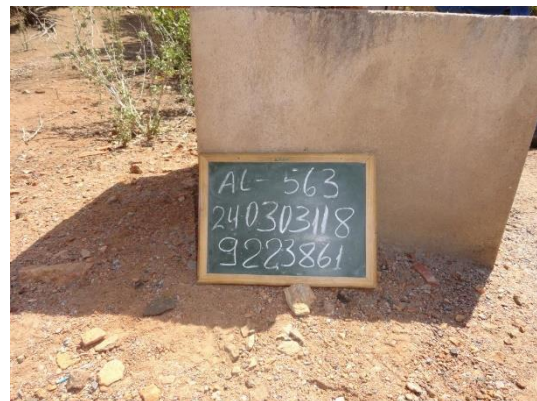 AL- 563
240303118
9223861